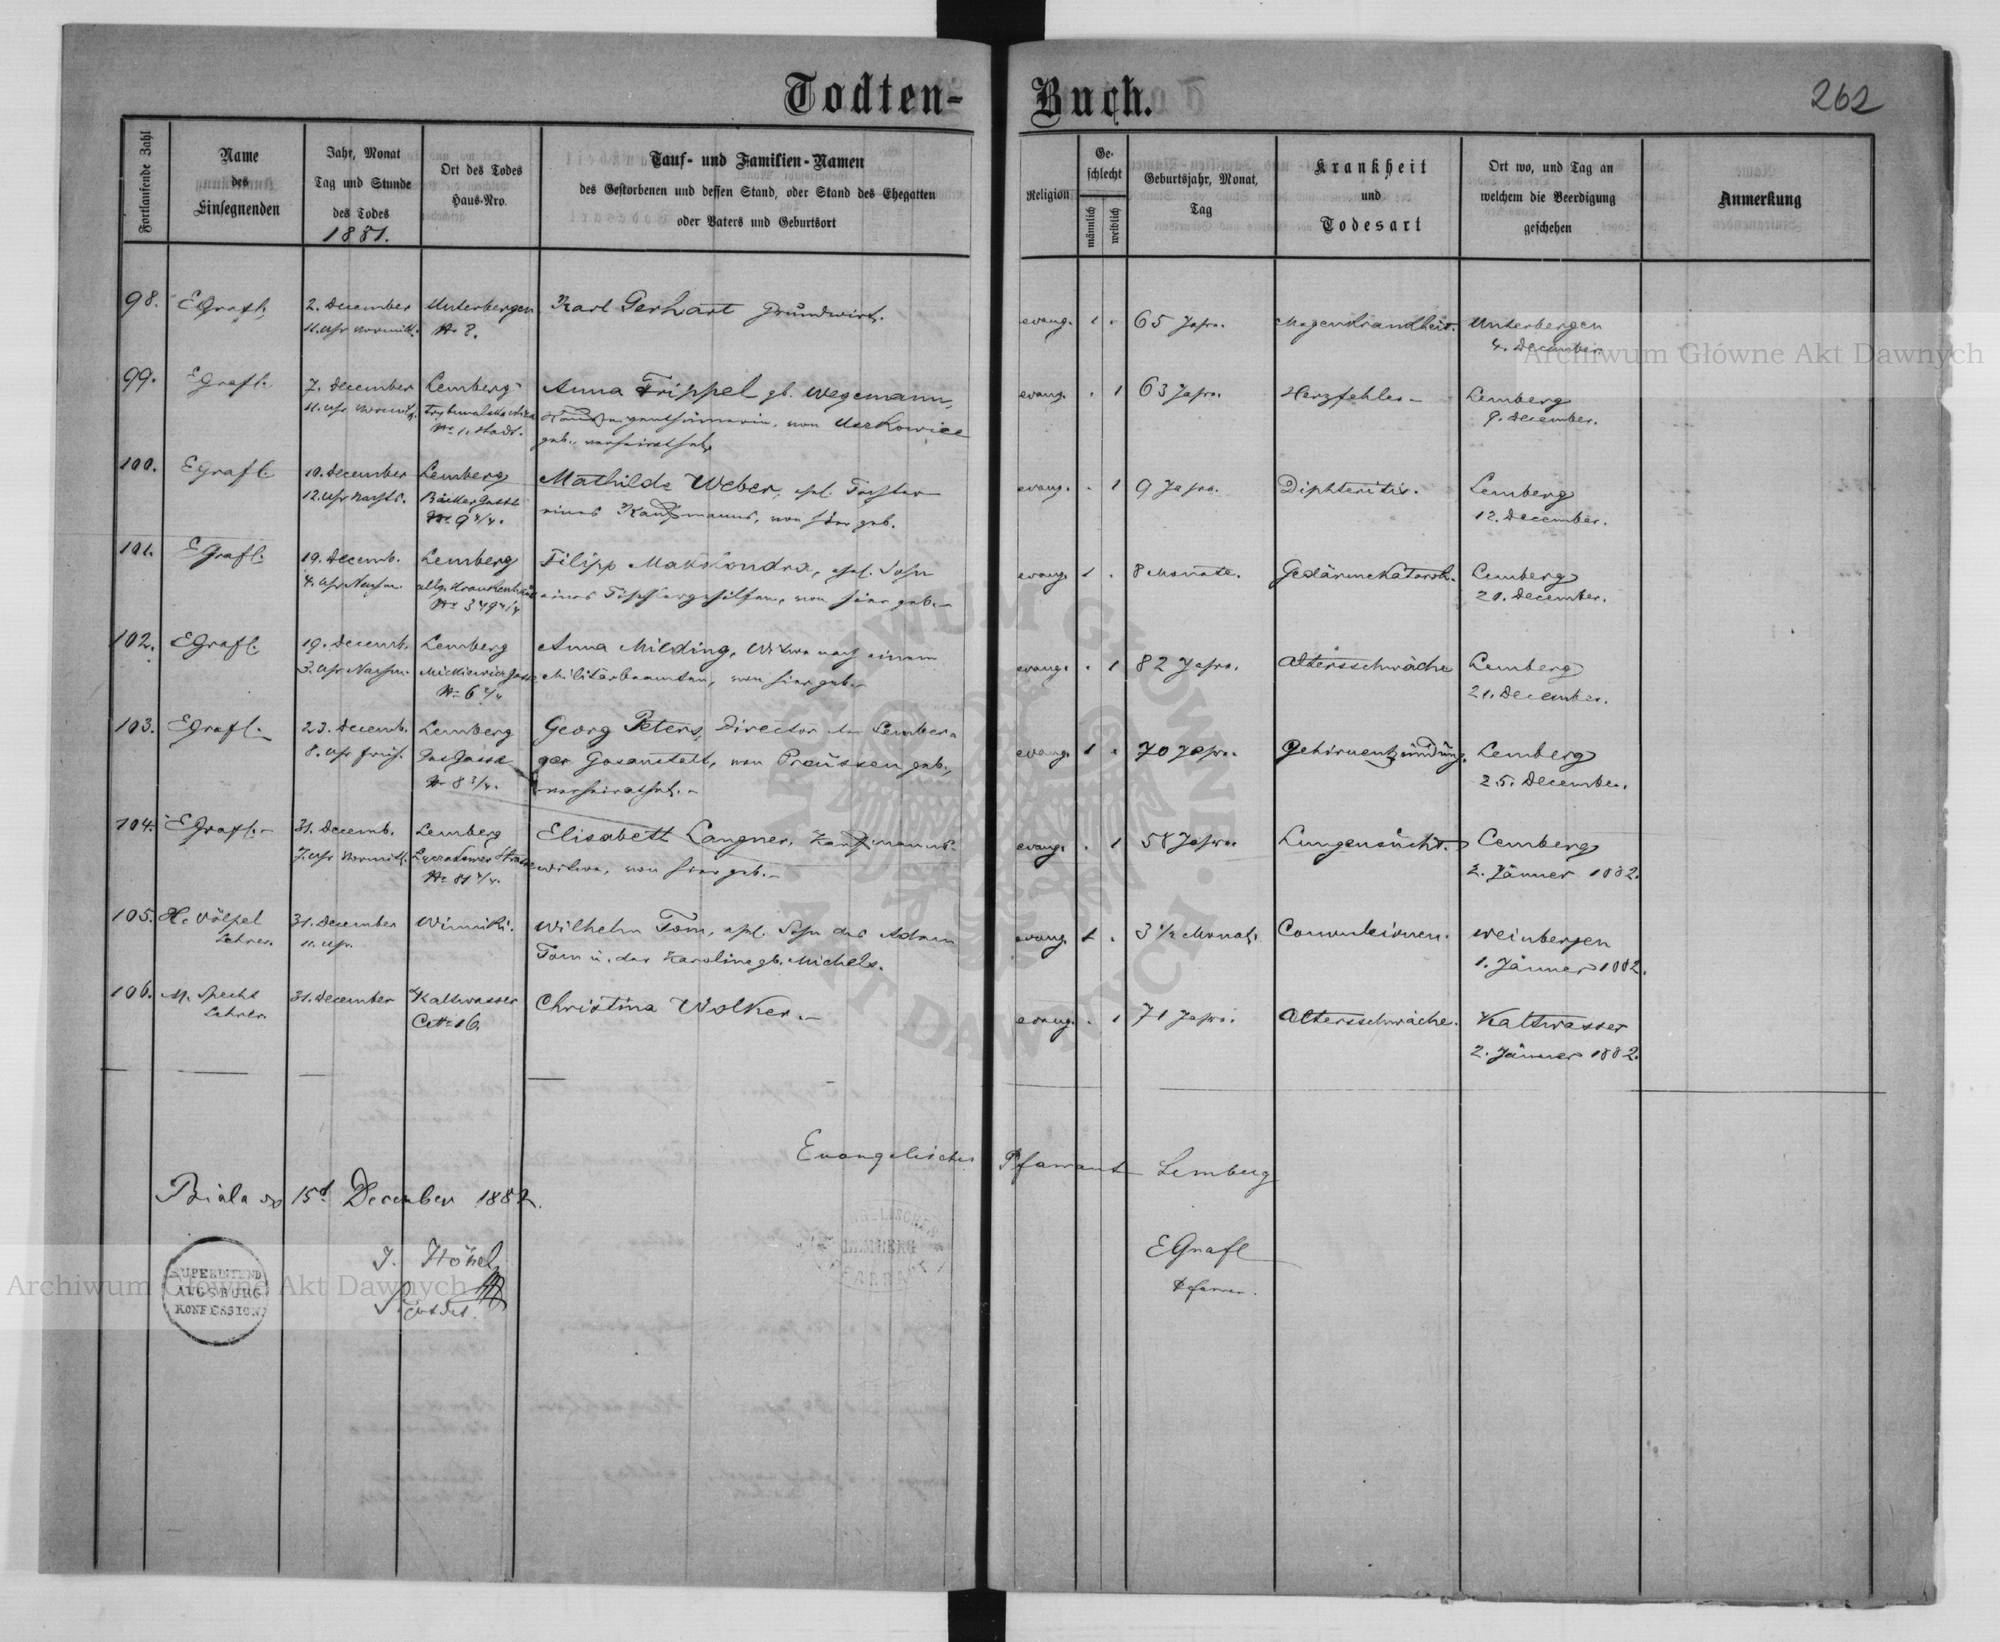 Todten-Buch.
262
Fortlaufende Zahl
Name
des
Einsegnenden
Jahr, Monat
Tag und Stunde
des Todes
1881.
Ort des Todes
Haus-Nro.
Tauf- und Familien-Namen
des Gestorbenen und dessen Stand, oder Stand des Ehegatten
oder Vaters und Geburtsort
Religion
Ge-
schlecht
männlich
weiblich
Geburtsjahr, Monat,
Tag
Krankheit
und
Todesart
Ort wo, und Tag an
welchem die Beerdigung
geschehen
Anmerkung
98. EGrafl. 2. December Unterbergen Karl Gerhart Grundwirt. evang. 1 . 65 Jahre. Magenkrankheit. Unterbergen
11. Uhr Vormitt. No 8. 4. December.
99. EGrafl. 7. December Lemberg Anna Trippel gb. Wegemann, evang. . 1 63 Jahre. Herzfehler Lemberg
11. Uhr Vormitt. No 1. Stadt. von Uszkowice 9. December.
geb., verheirathet.
100. EGrafl. 10. December Lemberg Mathilde Weber, ehel. Tochter evang. . 1 9 Jahre. Diphteritis. Lemberg
12. Uhr Nachts. Bäcker Gasse eines Kaufmanns, von hier geb. 12. December.
No 9 4/4.
101. EGrafl. 19. Decemb. Lemberg Filipp Makolondra, ehel. Sohn evang. 1 . 8 Monate. Gedärmekatarrh. Lemberg
4. Uhr Nachm. allg. Krankenhaus eines Tischlergehilfen, von hier geb. 21. December.
102. EGrafl. 19. Decemb. Lemberg Anna Milding, Witwe nach einem evang. . 1 82 Jahre. Altersschwäche Lemberg
3. Uhr Nachm. Mickiewicz Gasse Militärbeamten, von hier geb. 21. December.
No 6
103. EGrafl. 23. Decemb. Lemberg Georg Peters, Director der Lember- evang. 1 . 70 Jahre. Gehirnentzündung. Lemberg
8. Uhr früh. Gas Gasse ger Gasanstalt, von Preussen geb., 25. December.
No 8 3/4. verheirathet.
104. EGrafl. 31. Decemb. Lemberg Elisabett Langner, Kaufmanns- evang. . 1 58 Jahre. Lungensucht. Lemberg
7. Uhr Vormitt. witwe, von hier geb. 2. Jänner 1882.
No 81 4/4.
105. H. Völpel 31. December Winniki. Wilhelm Tom, ehel. Sohn des Adam evang. 1 . 3 1/2 Monat. Convulsionen. Weinbergen
Lehrer. 11. Uhr. Tom u. der Karoline gb. Michels. 1. Jänner 1882.
106. M. Specht 31. December Kaltwasser Christina Wolker. evang. . 1 71 Jahre. Altersschwäche. Kaltwasser
Lehrer. CNo 16. 2. Jänner 1882.
Evangelisches Pfarramt Lemberg
Biala 15t December 1882.
J. Hönel
EGrafl
Pfarrer.
SUPERINTEND
AUGSBURG
KONFESSION
LEMBERG
Archiwum Główne Akt Dawnych
Archiwum Główne Akt Dawnych
ARCHIWUM GŁÓWNE AKT DAWNYCH